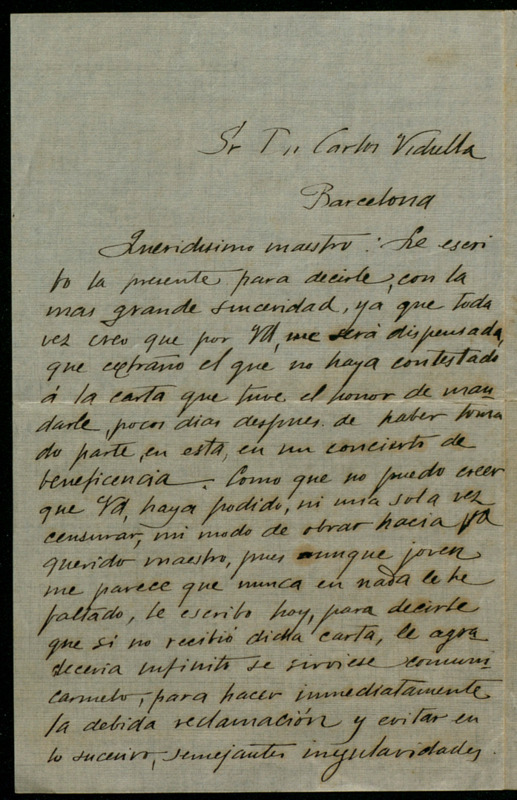 Sr D. Carlos Vidiella
Barcelona
Queridisimo maestro: Le escri
bo la presente para decirle, con la
mas grande sinceridad, ya que toda
vez creo que por Vd, me será dispensada,
que extraño el que no haya contestado
á la carta que tuve el honor de man
darle, pocos dias despues de haber toma
do parte, en esta, en un concierto de
beneficencia. Como que no puedo creer
que Vd, haya podido, ni una sola vez
censurar, mi modo de obrar hacia Vd
querido maestro, pues aunque joven
me parece que nunca en nada le he
faltado, le escribo hoy, para decirle
que si no recibió dicha carta, le agra
deceria infinito se sirviese comuni
carmelo, para hacer inmediatamente
la debida reclamación y evitar en
lo sucesivo, semejantes irregularidades.